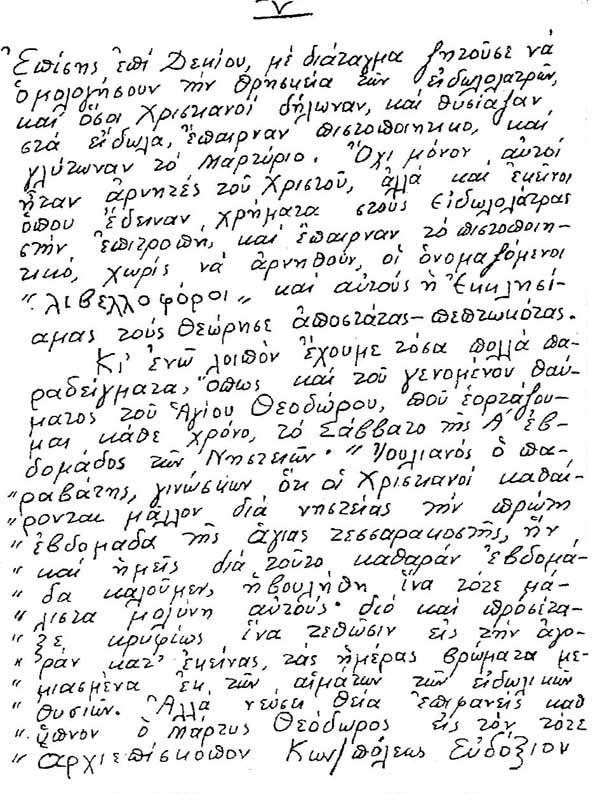 V
Ἐπίσης ἐπί Δεκίου, μέ διάταγμα ζητοῦσε νά
ὁμολογήσουν τήν θρησκεία τῶν εἰδωλολατρῶν,
καί ὅσοι Χριστιανοί δήλωναν, καί θυσίαζαν
στά εἴδωλα, ἔπαιρναν πιστοποιητικό, καί
γλύτωναν τό μαρτύριο. Ὄχι μόνον αὐτοί
ἦταν ἀρνητές τοῦ Χριστοῦ, ἀλλά καί ἐκεῖνοι
ὅπου ἔδειναν χρήματα στούς εἰδωλολάτρας
στήν ἐπιτροπή, καί ἔπαιρναν τό πιστοποιη-
τικό, χωρίς νά ἀρνηθοῦν, οἱ ὀνομαζόμενοι
"λιβελλοφόροι" καί αὐτούς ἡ Ἐκκλησί-
αμας τούς θεώρησε ἀποστάτας-πεπτωκότας.
Κι' ἐνῶ λοιπόν ἔχουμε τόσα πολλά πα-
ραδείγματα, ὅπως καί τοῦ γενομένου θαύ-
ματος τοῦ Ἁγίου Θεοδώρου, πού ἑορτάζου-
μαι κάθε χρόνο, τό Σάββατο τῆς Α' ἑβ-
δομάδος τῶν Νηστειῶν· "Ἰουλιανός ὁ πα-
"ραβάτης, γινώσκων ὅτι οἱ Χριστιανοί καθαί-
"ρονται μᾶλλον διά νηστείας τήν πρώτη
"ἑβδομάδα τῆς ἁγίας τεσσαρακοστῆς, ἥν
"καί ἡμεῖς διά τοῦτο καθαράν ἑβδομά-
"δα καλοῦμεν, ἠβουλήθη ἵνα τότε μά-
"λιστα μολύνη αὐτούς· διό καί προσέτα-
"ξε κρυφίως ἵνα τεθῶσιν εἰς τήν ἀγο-
"ράν κατ' ἐκείνας, τάς ἡμέρας βρώματα με-
"μιασμένα ἐκ τῶν αἱμάτων τῶν εἰδωλικῶν
"θυσιῶν. Ἀλλά νεύσει θεία ἐπιφανείς καθ
"ὕπνον ὁ Μάρτυς Θεόδωρος εἰς τόν τότε
"ἀρχιεπίσκοπον Κων/πόλεως Εὐδόξιον